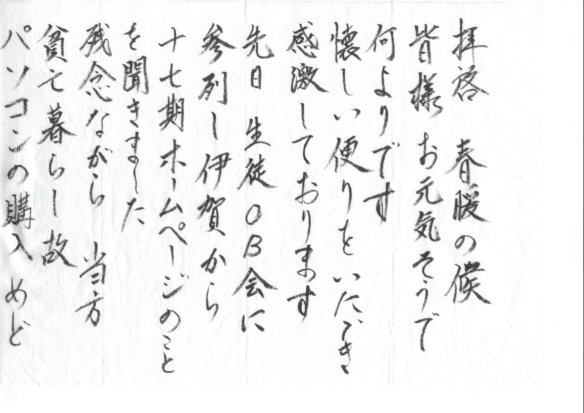 拝啓 春暖の候
皆様 お元気そうで
何よりです
懐しい便りをいたゞき
感激しております
先日 生徒OB会に
参列し伊賀から
十七期ホームページのこと
を聞きました
残念ながら 当方
貧乏暮らし故
パソコンの購入めど